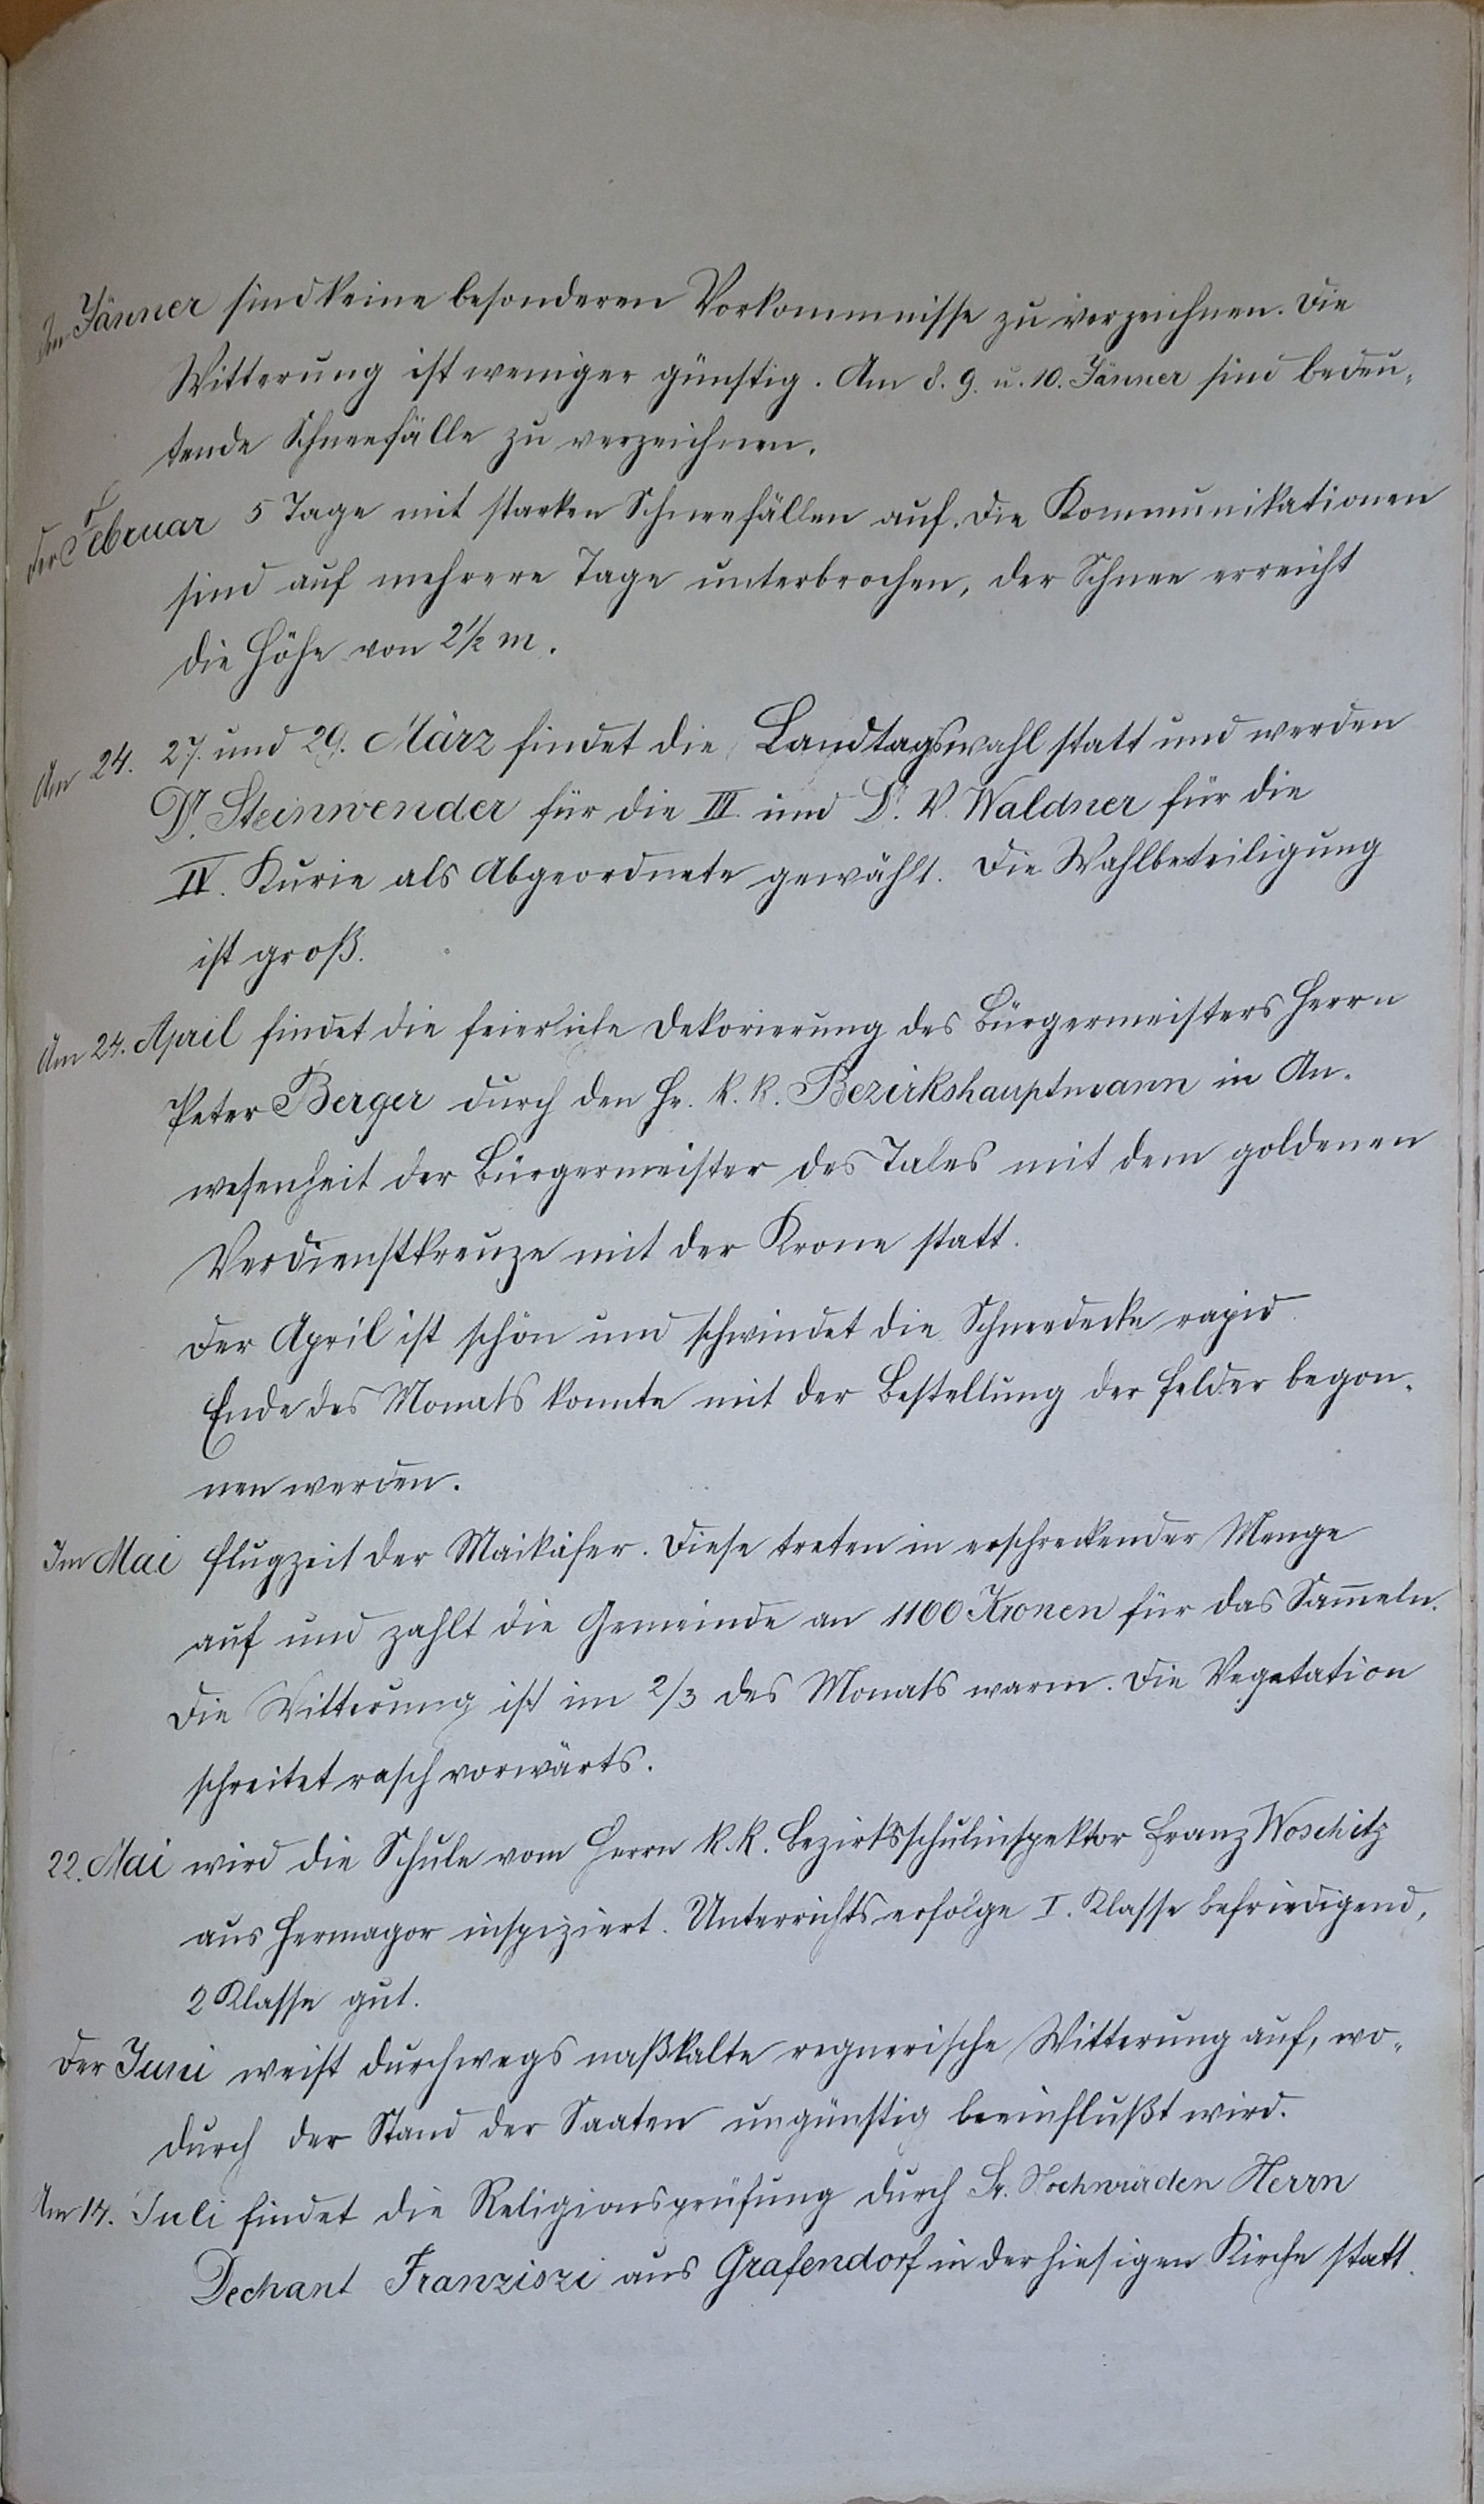 Im Jänner sind keine besonderen Vorkommnisse zu verzeichnen. Die
Witterung ist weniger günstig. Am 8. 9. u. 10. Jänner sind bedeu-
tende Schneefälle zu verzeichnen.
Der Februar 5 Tage mit starken Schneefällen auf. Die Kommunikationen
sind auf mehrere Tage unterbrochen, der Schnee erreicht
die Höhe von 2½ m.
Am 24. 27. und 29. März findet die Landtagswahl statt und werden
Dr. Steinwender für die III. und Dr. V. Waldner für die
IV. Kurie als Abgeordnete gewählt. Die Wahlbeteiligung
ist groß.
Am 24. April findet die feierliche Dekorierung des Bürgermeisters Herrn
Peter Berger durch den Hr. k. k. Bezirkshauptmann in An-
wesenheit der Bürgermeister des Tales mit dem goldenen
Verdienstkreuze mit der Krone statt.
Der April ist schön und schwindet die Schneedecke rapid.
Ende des Monats konnte mit der Bestellung der Felder begon-
nen werden.
Im Mai Flugzeit der Maikäfer. Diese treten in erschreckender Menge
auf und zahlt die Gemeinde an 1100 Kronen für das Sam̄eln.
Die Witterung ist im 2/3 des Monats warm. Die Vegetation
schreitet rasch vorwärts.
22. Mai wird die Schule vom Herrn k. k. Bezirksschulinspektor Franz Woschitz
aus Hermagor inspiziert. Unterrichtserfolge I. Klasse befriedigend,
2 Klasse gut.
Der Juni weist durchwegs naßkalte regnerische Witterung auf, wo-
durch der Stand der Saaten ungünstig beeinflußt wird.
Am 14. Juli findet die Religionsprüfung durch Sr. Hochwürden Herrn
Dechant Franziszi aus Grafendorf in der hiesigen Kirche statt.